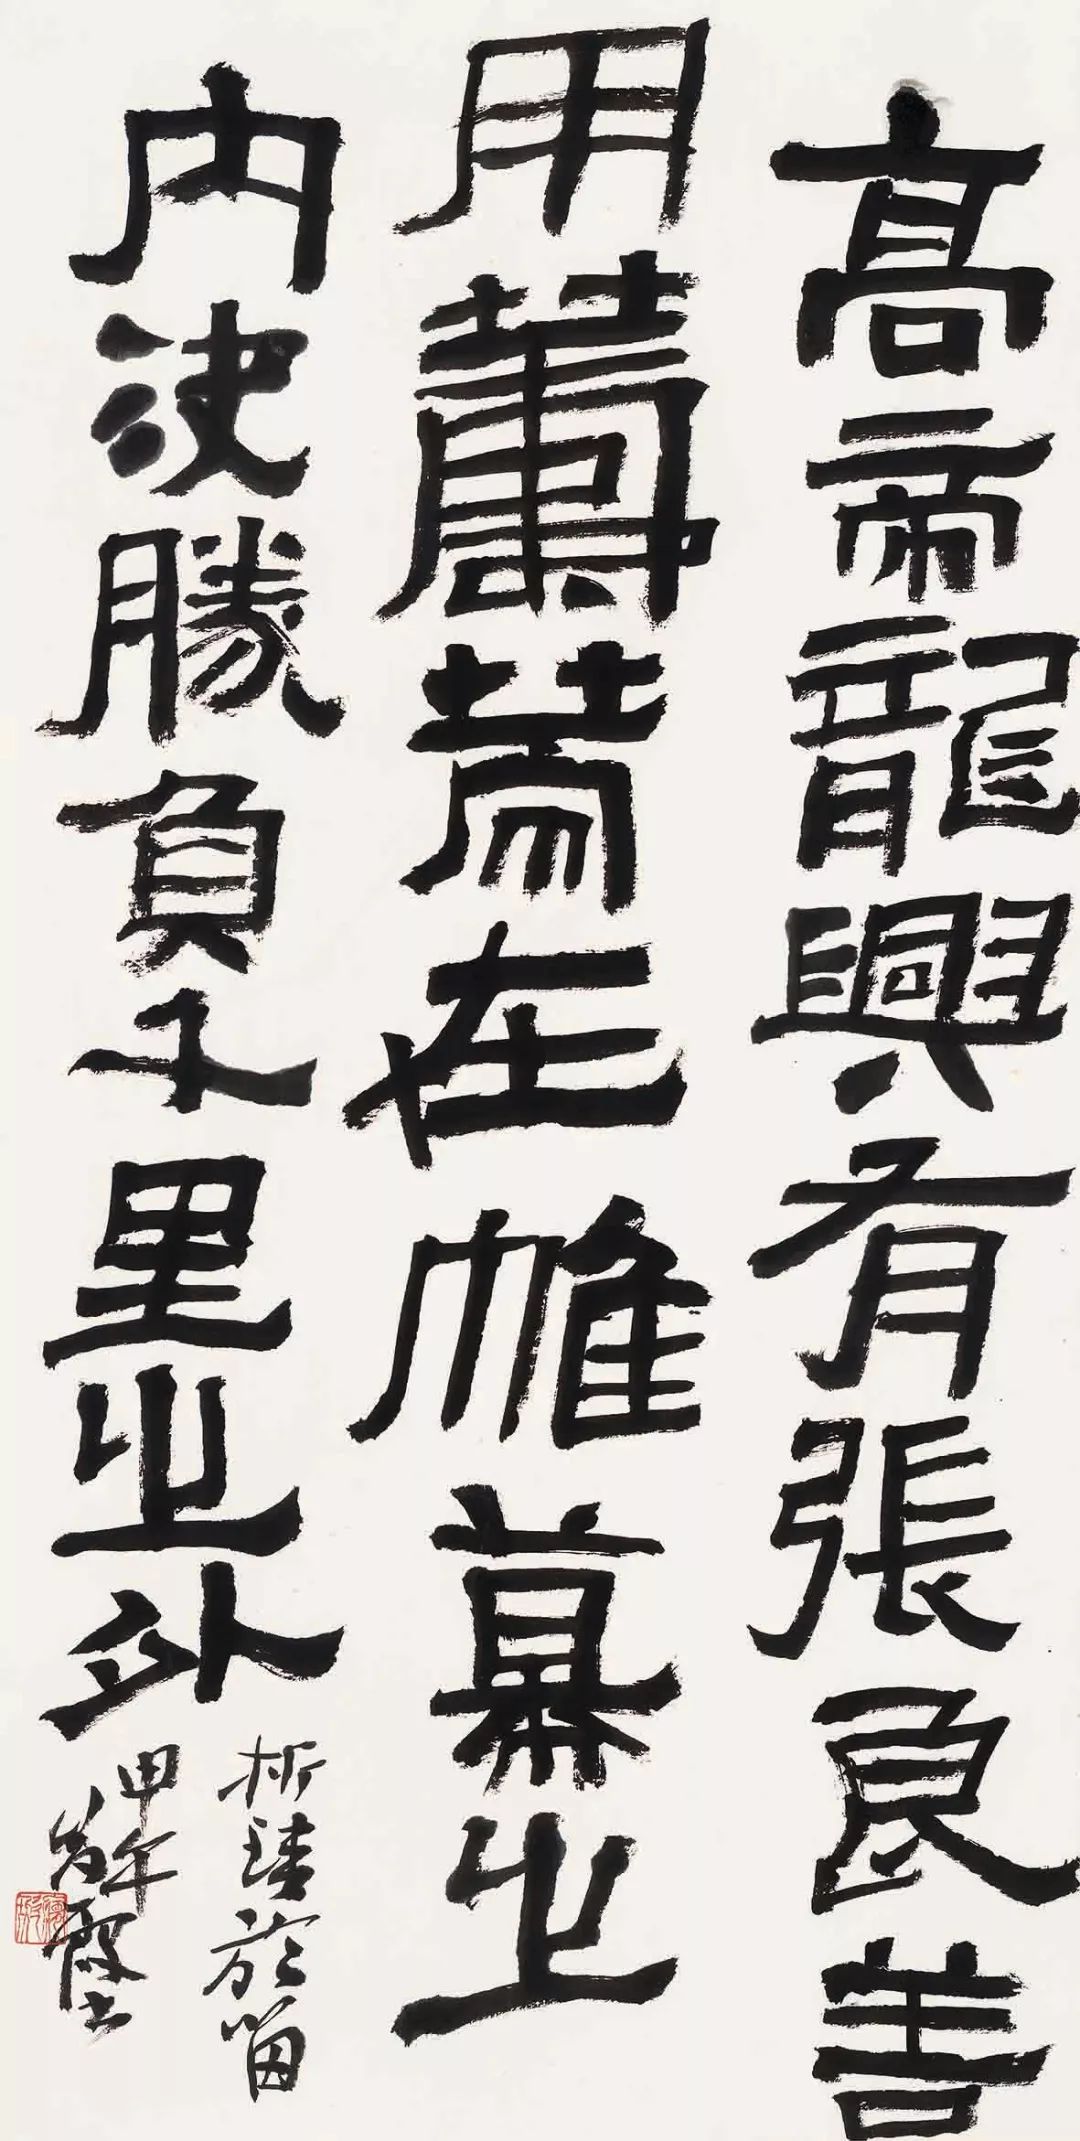 高帝龍興有張良善
用籌策在帷幕之
內決勝負千里之外
析珪於留
甲午